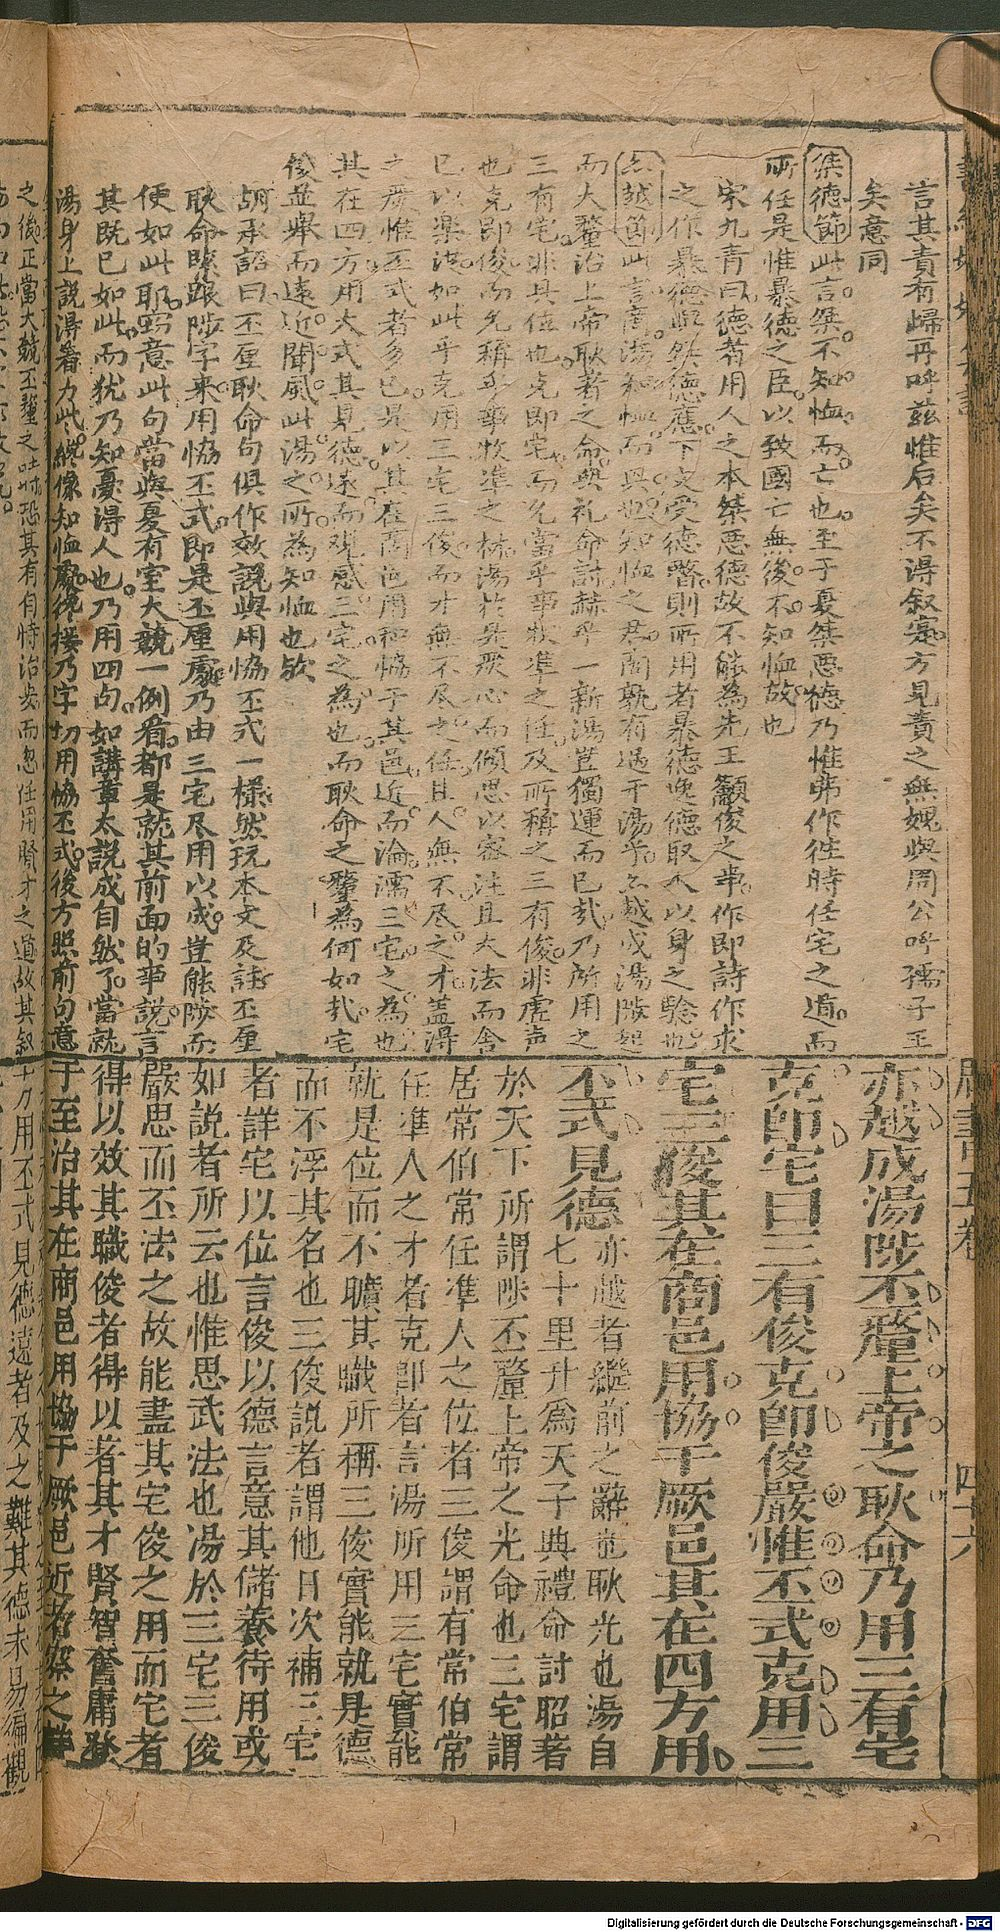 言其責有歸再呼茲惟后矣不得叙寔方見責之無媿與周公呼孺子王
矣意同
桀德節此言桀不知恤而亡也至于夏桀惡德乃惟弗作往時任宅之道而
所任是惟暴德之臣以致國亡無後不知恤故也
宋九青曰德者用人之本桀惡德故不能為先王籲俊之事作即詩作求
之作暴德與桀德應下文受德暋則所用者暴德逸德取人以身之驗也
亦越節此言商湯知恤而興也知恤之君商孰有過于湯乎亦越成湯陟起
而大釐治上帝耿著之命與礼命討赫乎一新湯豈獨運而已哉乃所用之
三有宅非具位也克即宅而允當乎事牧準之任及所稱之三有俊非虛声
也克即俊而允稱乎事牧準之材湯於是嚴心而傾思以容注且大法而舍
已以樂從如此乎克用三宅三俊而才無不尽之任且人無不尽之才蓋得
之嚴惟丕式者多也是以其在商邑用和恊于其邑近而淪濡三宅之為也
其在四方用大式其見德遠而觀感三宅之為也而耿命之釐為何如哉宅
俊並舉而遠近聞風此湯之所為知恤也欤
胡承詔曰丕厘耿命句俱作效說與用恊丕式一樣然玩本文及註丕厘
耿命緊跟陟字來用恊丕式即是丕厘處乃由三宅尽用以成豈能陟而
便如此耶窃意此句當與夏有室大競一例看都是就其前面的事說言
其既已如此而犹乃知憂得人也乃用四句如講章太說成自然了當就
湯身上說得着力此纔像知恤處後接乃字切用恊丕式後方照前句意
周書五卷
四十六
亦越成湯陟丕釐上帝之耿命乃用三有宅
克卽宅曰三有俊克卽俊嚴惟丕式克用三
宅三俊其在商邑用協于厥邑其在四方用
丕式見德亦越者繼前之辭也耿光也湯自
七十里升爲天子典禮命討昭著
於天下所謂陟丕釐上帝之光命也三宅謂
居常伯常任準人之位者三俊謂有常伯常
任準人之才者克卽者言湯所用三宅實能
就是位而不曠其職所稱三俊實能就是德
而不浮其名也三俊說者謂他日次補三宅
者詳宅以位言俊以德言意其儲養待用或
如說者所云也惟思式法也湯於三宅三俊
嚴思而丕法之故能盡其宅俊之用而宅者
得以效其職俊者得以著其才賢智奮庸登
于至治其在商邑用協于厥邑近者察之詳